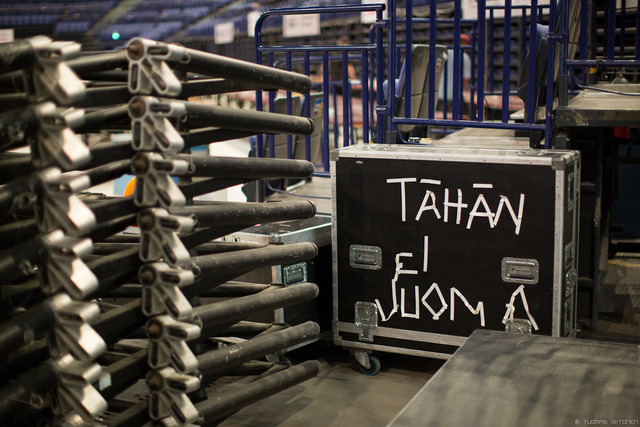 TĀHĀN
EI
JUOMA
© TUOMAS SIITONEN